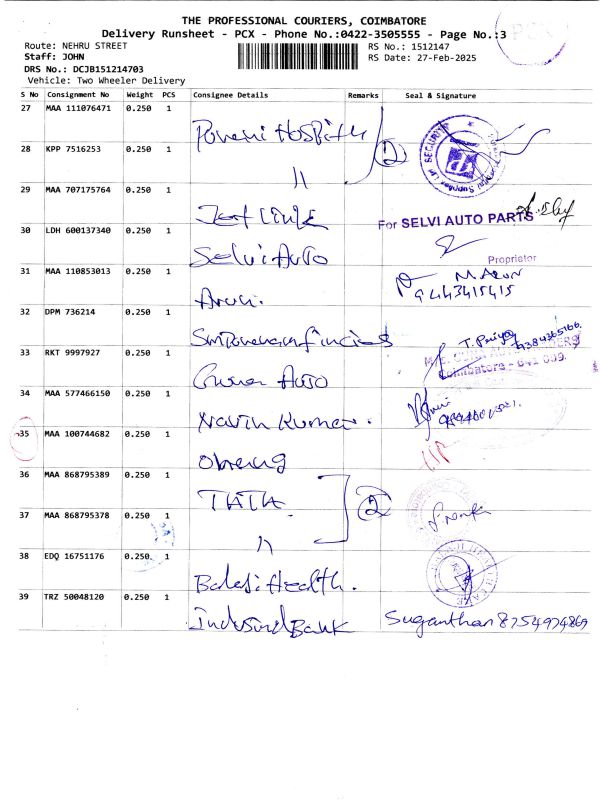 THE PROFESSIONAL COURIERS, COIMBATORE
Delivery Runsheet - PCX - Phone No.:0422-3505555 - Page No.:3
PCX
Route: NEHRU STREET
RS No.: 1512147
Staff: JOHN
RS Date: 27-Feb-2025
DRS No.: DCJB151214703
Vehicle: Two Wheeler Delivery
S No Consignment No Weight PCS Consignee Details Remarks Seal & Signature
27 MAA 111076471 0.250 1
28 KPP 7516253 0.250 1 〃 2
SECURITY
29 MAA 707175764 0.250 1
For SELVI AUTO PARTS
30 LDH 600137340 0.250 1 Selvi Auto
Proprietor
31 MAA 110853013 0.250 1 Arun.
M. ARUN
9443415415
32 DPM 736214 0.250 1
T. Priya
33 RKT 9997927 0.250 1 Auto
Coimbatore - 641 009.
34 MAA 577466150 0.250 1 Navin Kumar.
35 MAA 100744682 0.250 1
36 MAA 868795389 0.250 1 TATA
2
37 MAA 868795378 0.250 1 〃
38 EDQ 16751176 0.250 1 Balaji Health.
39 TRZ 50048120 0.250 1 Indusind Bank Suganthan 8754974869